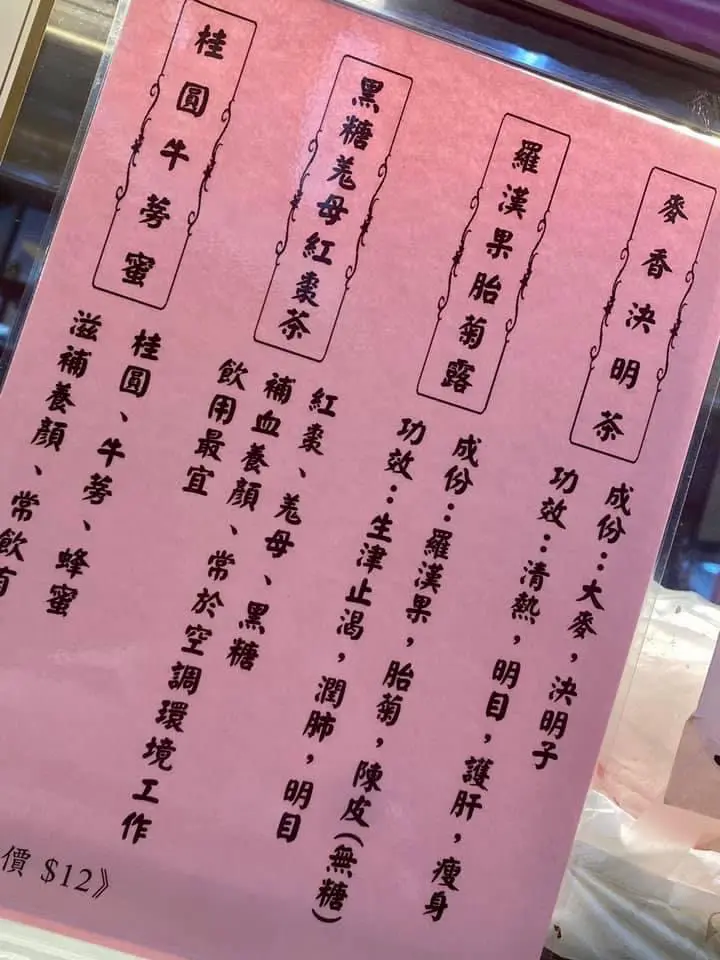 麥香決明茶
成份：大麥，決明子
功效：清熱，明目，護肝，瘦身
羅漢果胎菊露
成份：羅漢果，胎菊，陳皮(無糖)
功效：生津止渴，潤肺，明目
黑糖羗母紅棗茶
紅棗、羗母、黑糖
補血養顏、常於空調環境工作
飲用最宜
桂圓牛蒡蜜
桂圓、牛蒡、蜂蜜
滋補養顏、常飲有
價 $12》